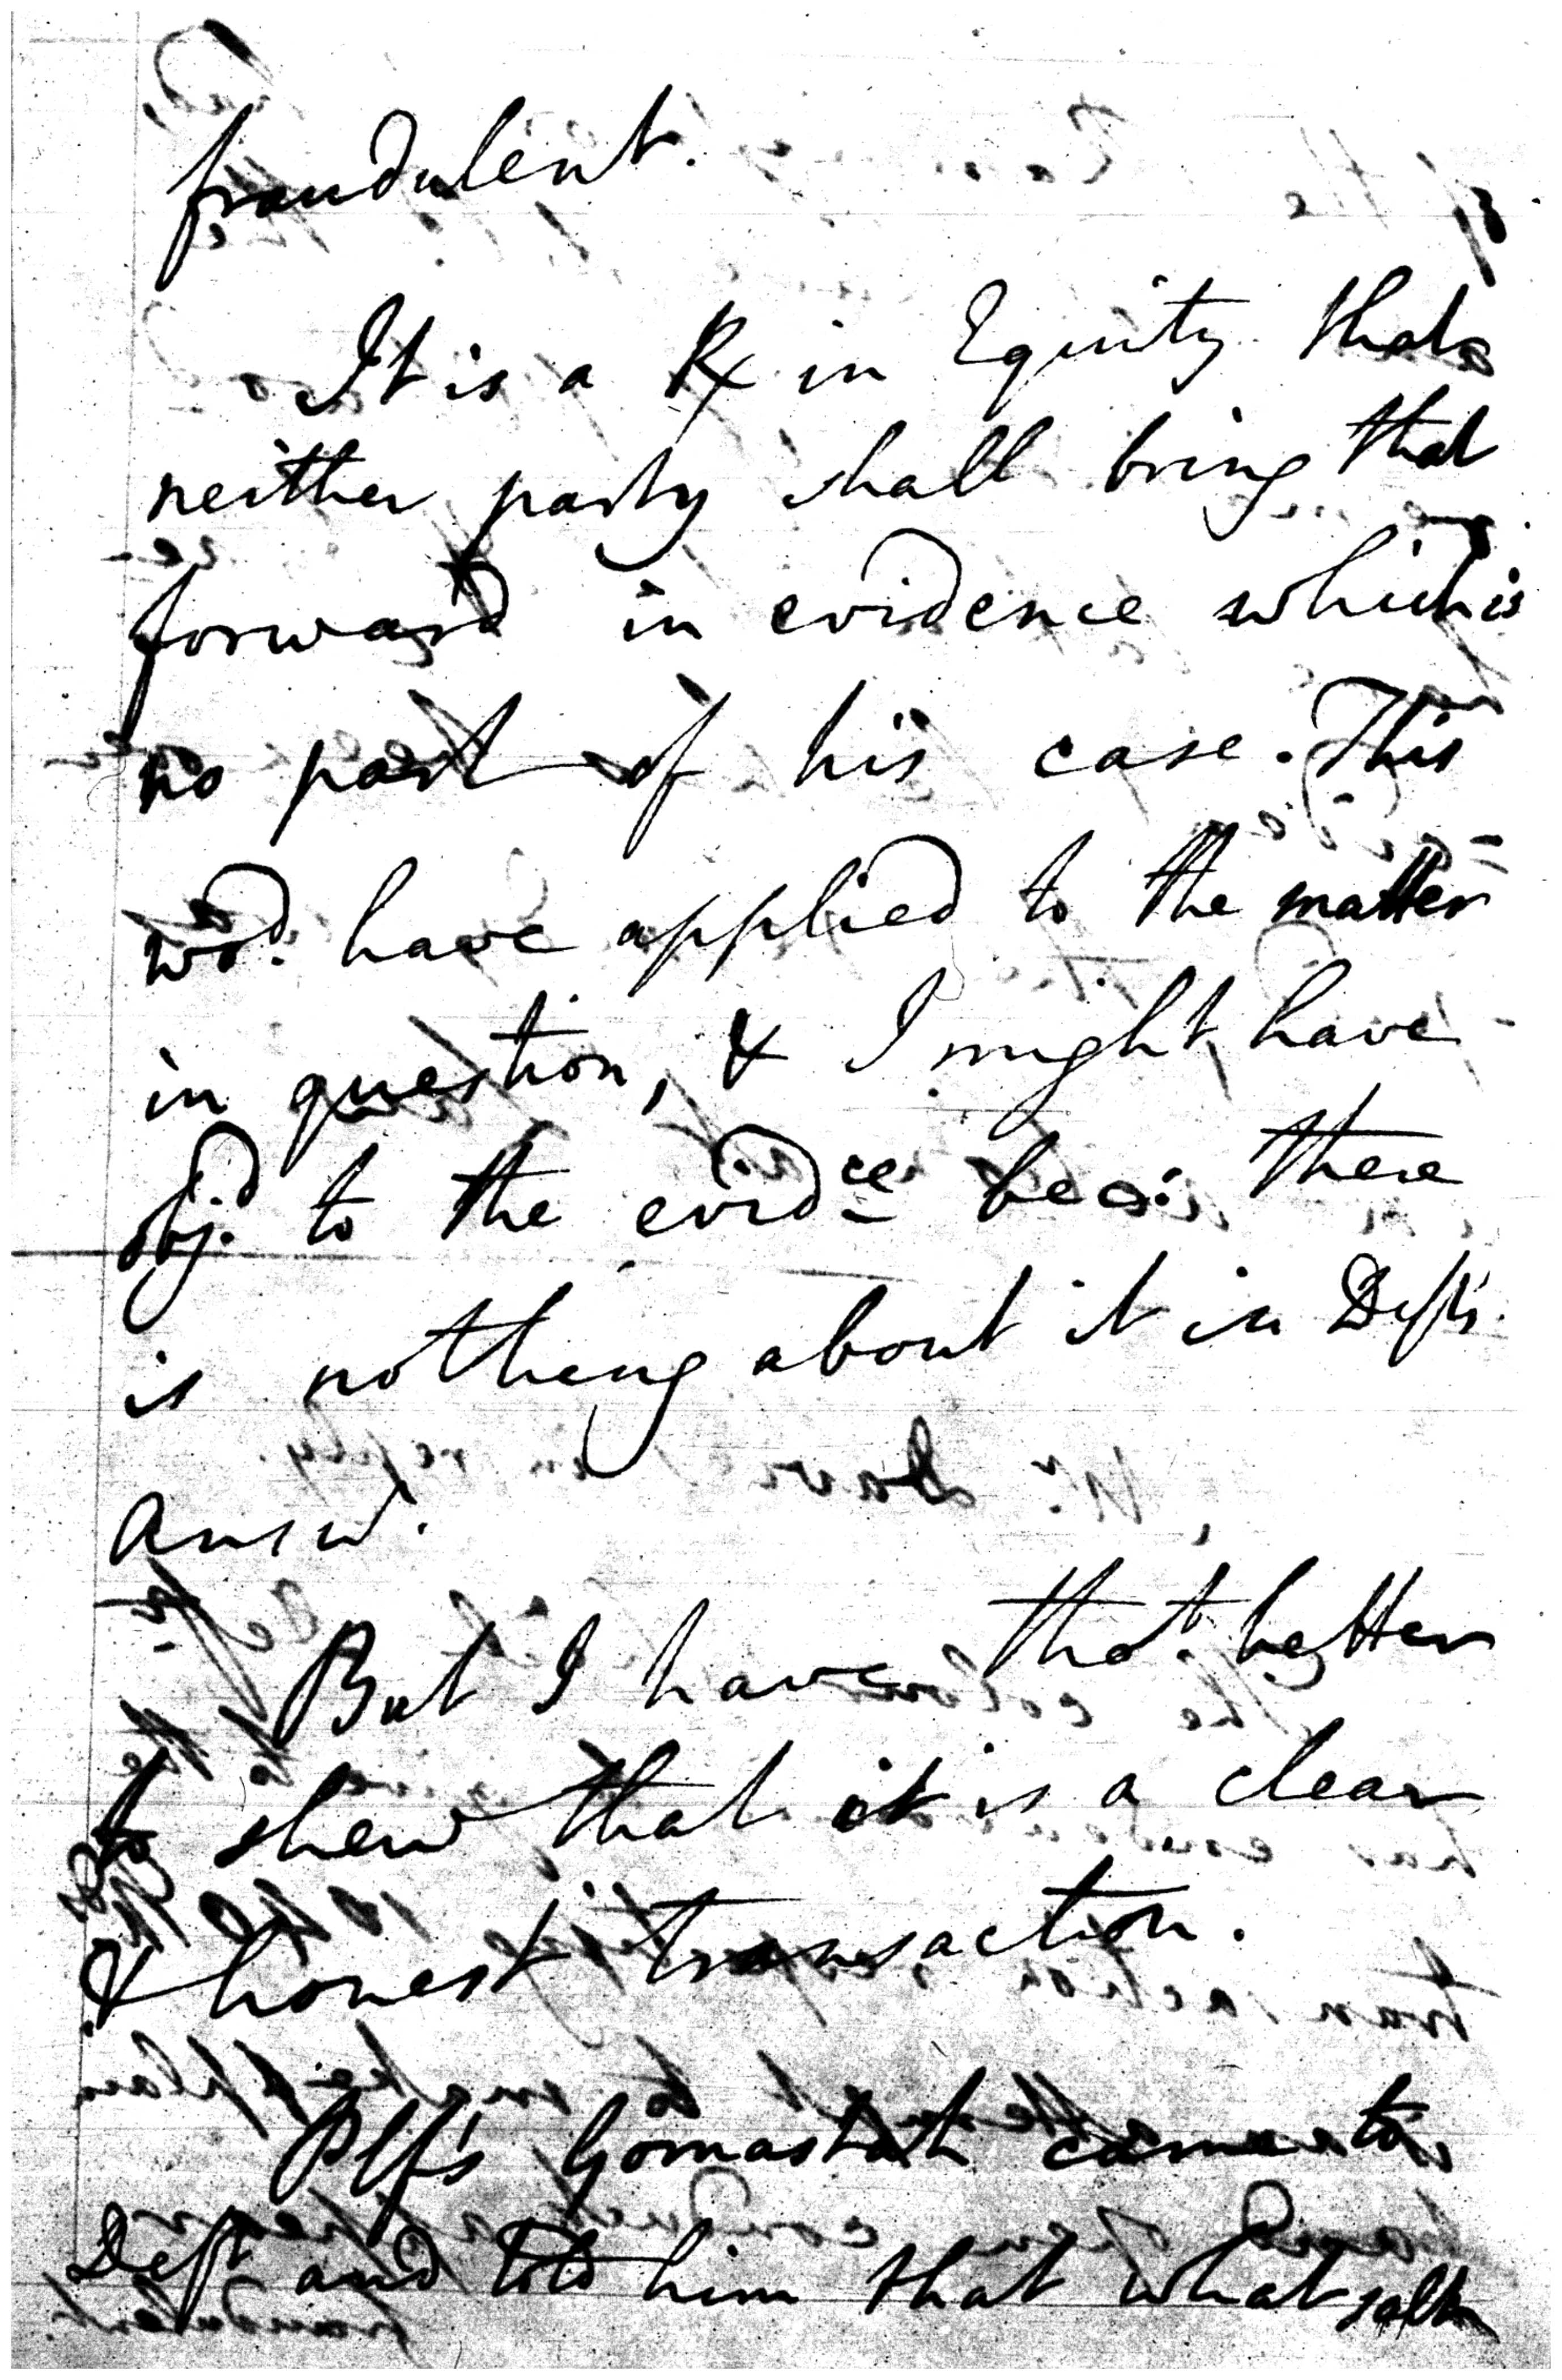 fraudulent.
It is a Rx in Equity that
neither party shall bring that
forward in evidence which is
no part of his case. This
wod. have applied to the matter
in question, & I might have
obj.d to the evidce beca: there
is nothing about it in Defts.
answ.
But I have that better
to shew that it is a clear
& honest transaction.
Plf's Gomastah came to
Deft and told him that what salt